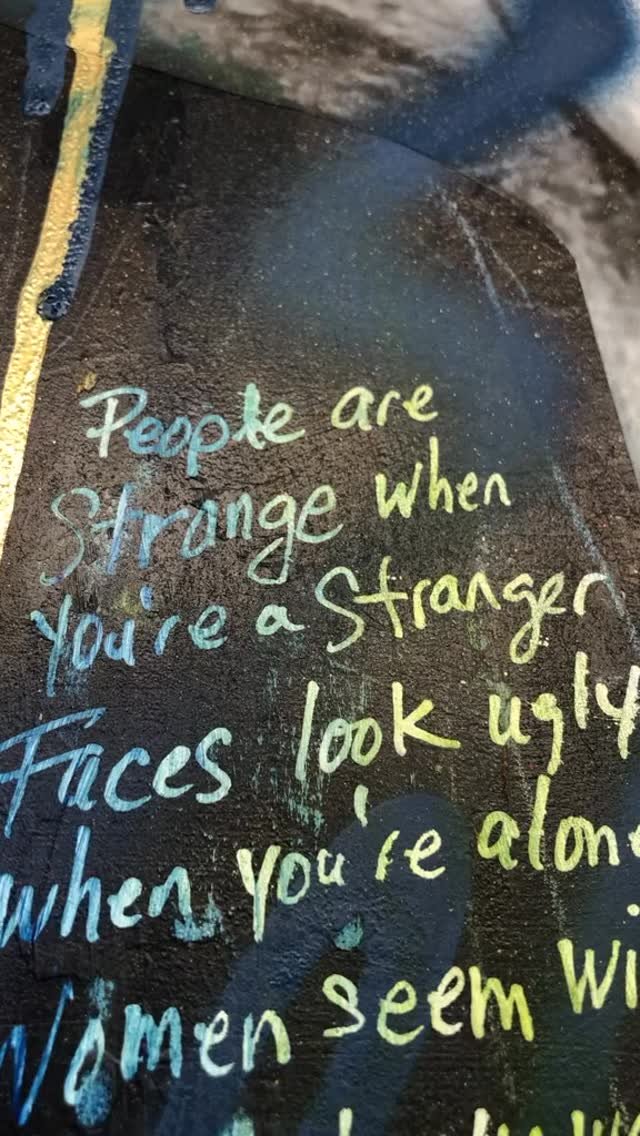 People are
Strange when
you're a Stranger
Faces look ugly
when you're alone
Women seem